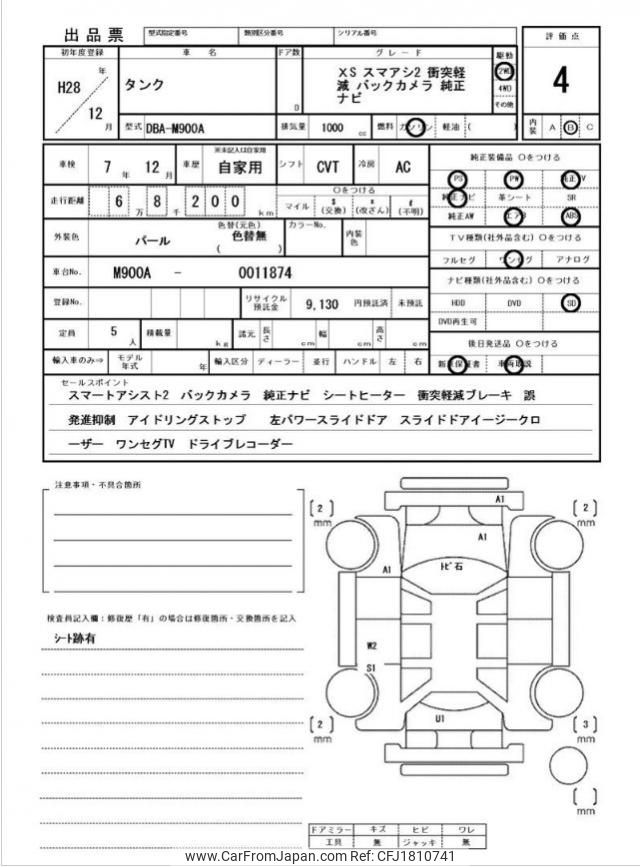 出品票 型式指定番号 類別区分番号 シリアル番号
評価点
初年度登録 車名 ドア数 グレード 駆動
H28 年 12 月
タンク
D
XS スマアシ2 衝突軽
減 バックカメラ 純正
ナビ
2WD
4WD
その他
4
型式 DBA-M900A 排気量 1000 cc 燃料 ガソリン ・ 軽油 ( )
内装 A B C
車検 7 年 12 月 車歴 ※未記入は自家用 自家用 シフト CVT 冷房 AC
純正装備品 〇をつける
PS PW 純正TV
純正ナビ 革シート SR
純正AW エアB ABS
走行距離 6 万 8 千 200 km
〇をつける
マイル $ (交換) * (改ざん) # (不明)
外装色 パール 色替(元色) 色替無 ( ) カラーNo. 内装色
TV種類(社外品含む) 〇をつける
フルセグ ワンセグ アナログ
車台No. M900A - 0011874
ナビ種類(社外品含む) 〇をつける
HDD DVD SD
DVD再生可
登録No. リサイクル預託金 9,130 円預託済 未預託
定員 5 人 積載量 kg 諸元 長さ cm 幅 cm 高さ cm
後日発送品 〇をつける
新車保証書 車両取説
輸入車のみ⇒ モデル年式 年 輸入区分 ディーラー ・ 並行 ハンドル 左 ・ 右
セールスポイント
スマートアシスト2 バックカメラ 純正ナビ シートヒーター 衝突軽減ブレーキ 誤
発進抑制 アイドリングストップ 左パワースライドドア スライドドアイージークロ
ーザー ワンセグTV ドライブレコーダー
注意事項・不具合箇所
検査員記入欄：修復歴「有」の場合は修復箇所・交換箇所を記入
シート跡有
[2] mm
A1
[2] mm
A1
A1
トビ石
W2
S1
U1
[2] mm
[3] mm
[ ] mm
ドアミラー キズ ヒビ ワレ
工具 無 ジャッキ 無
www.CarFromJapan.com Ref: CFJ1810741